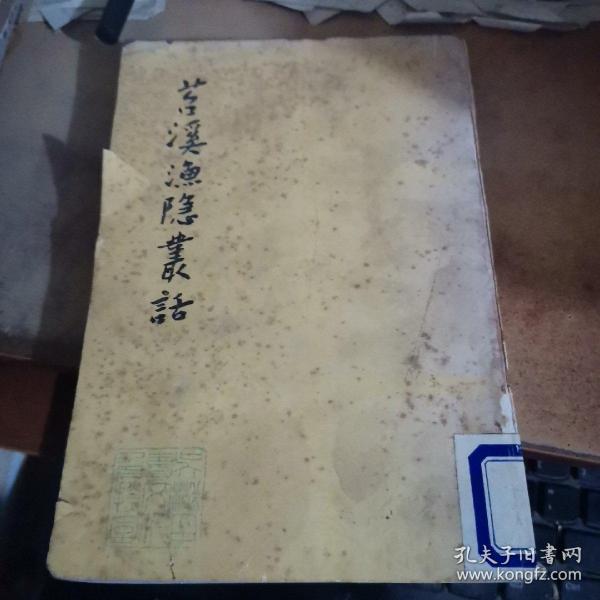 苕溪漁隱叢話
孔夫子旧书网
www.kongfz.com